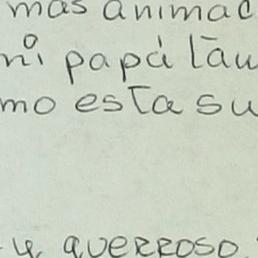 mas animad
mi papá tau
mo esta su
y querroso.